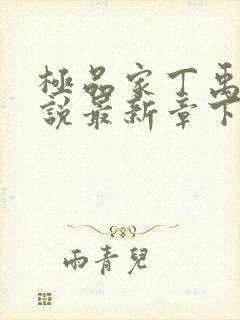 極品家丁禹
說最新章下
雨青兒